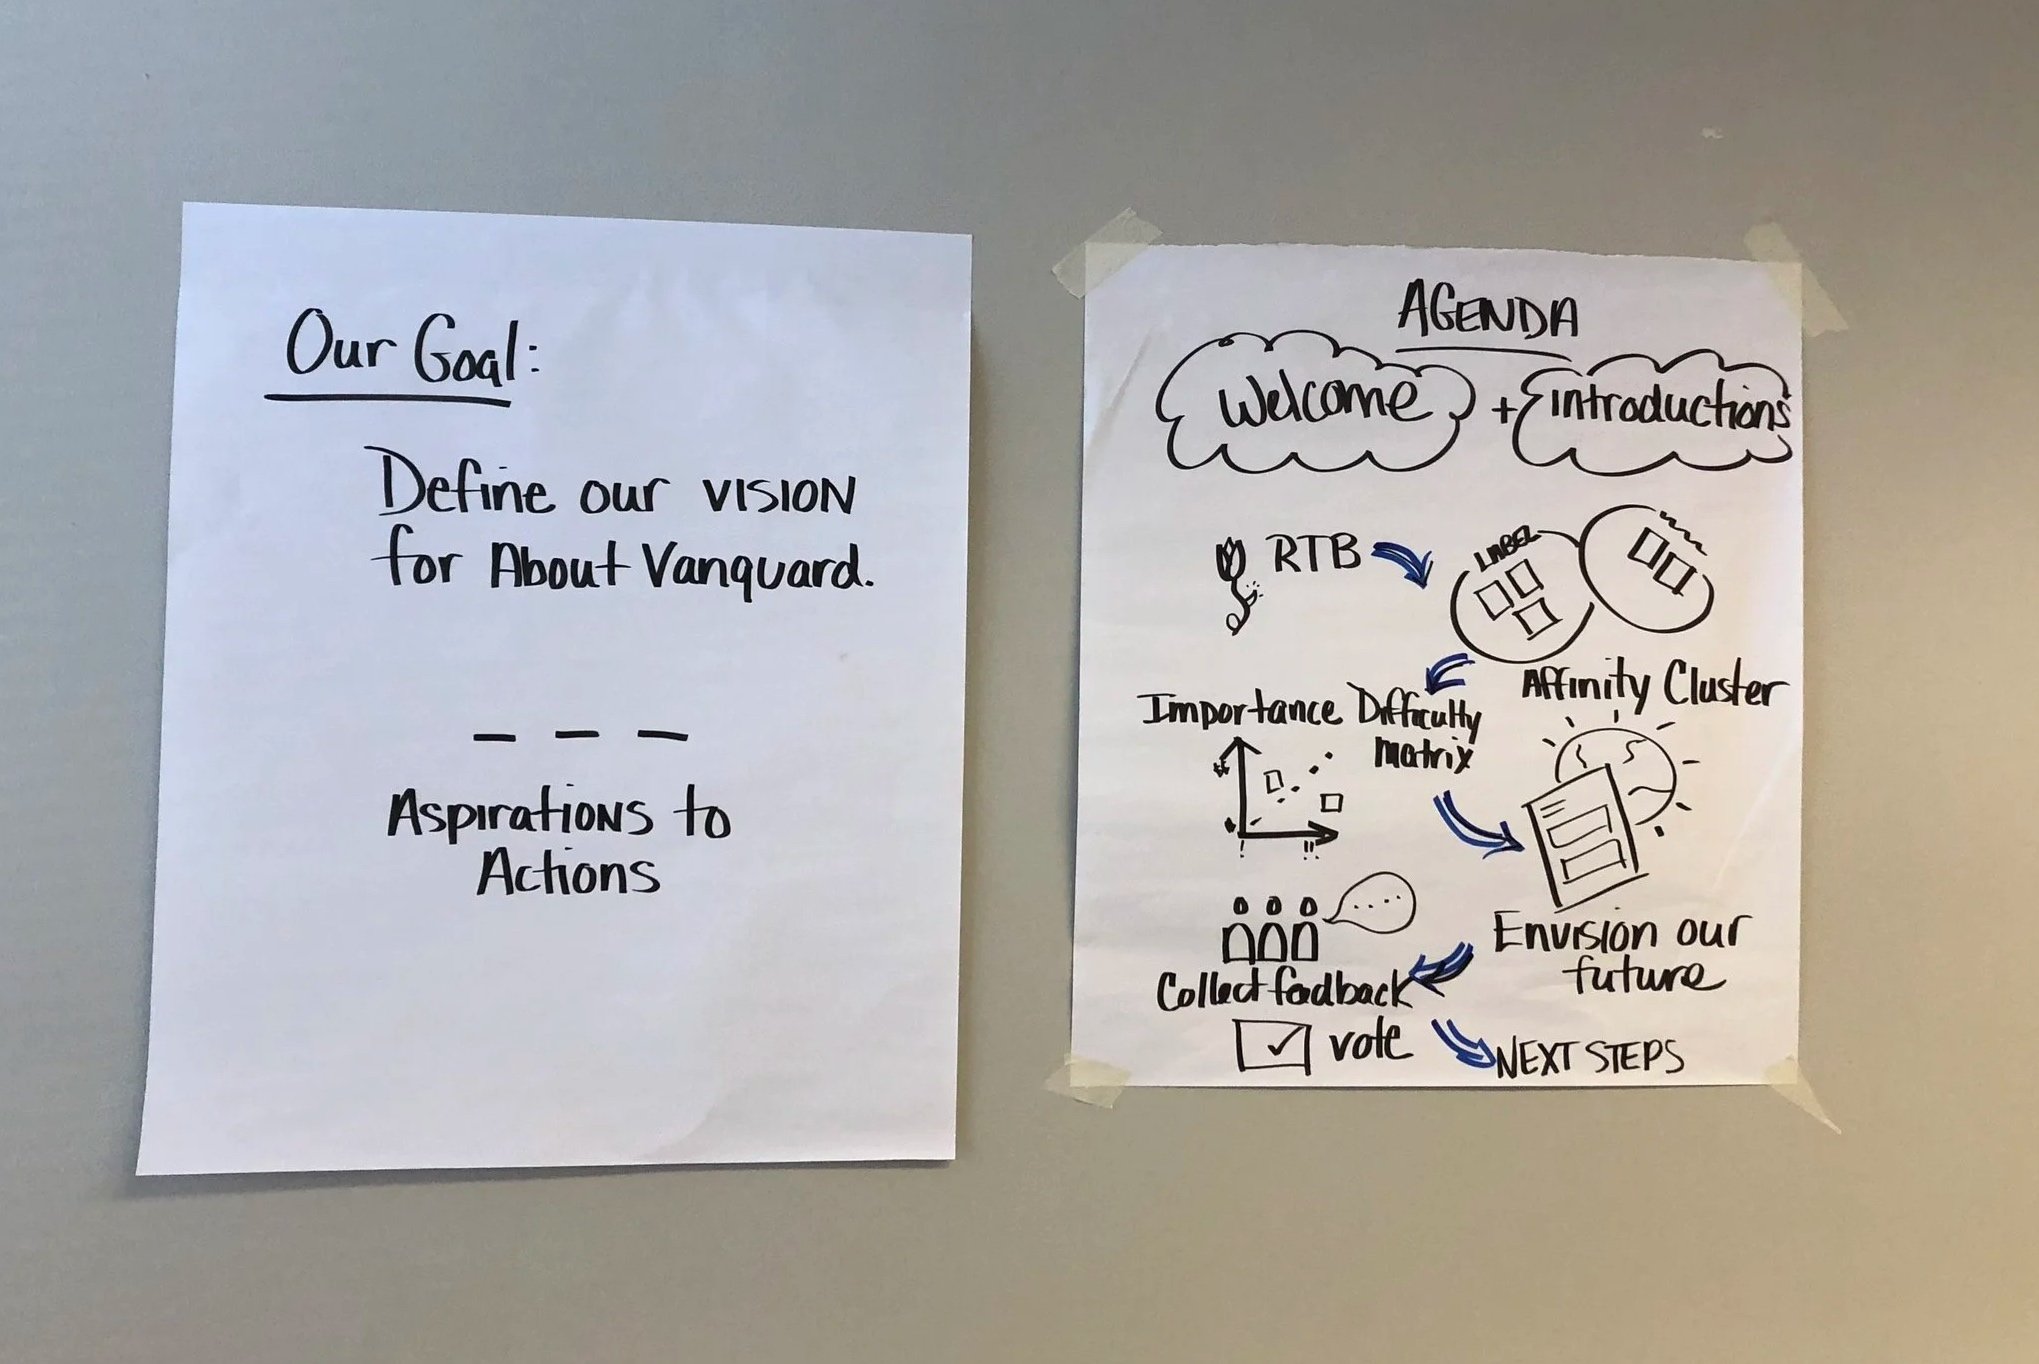 Our Goal:
Define our VISION
for About Vanguard.
Aspirations to
Actions
AGENDA
Welcome + introductions
RTB
LABEL
Affinity Cluster
Importance Difficulty
matrix
Envision our
future
Collect feedback
vote
NEXT STEPS